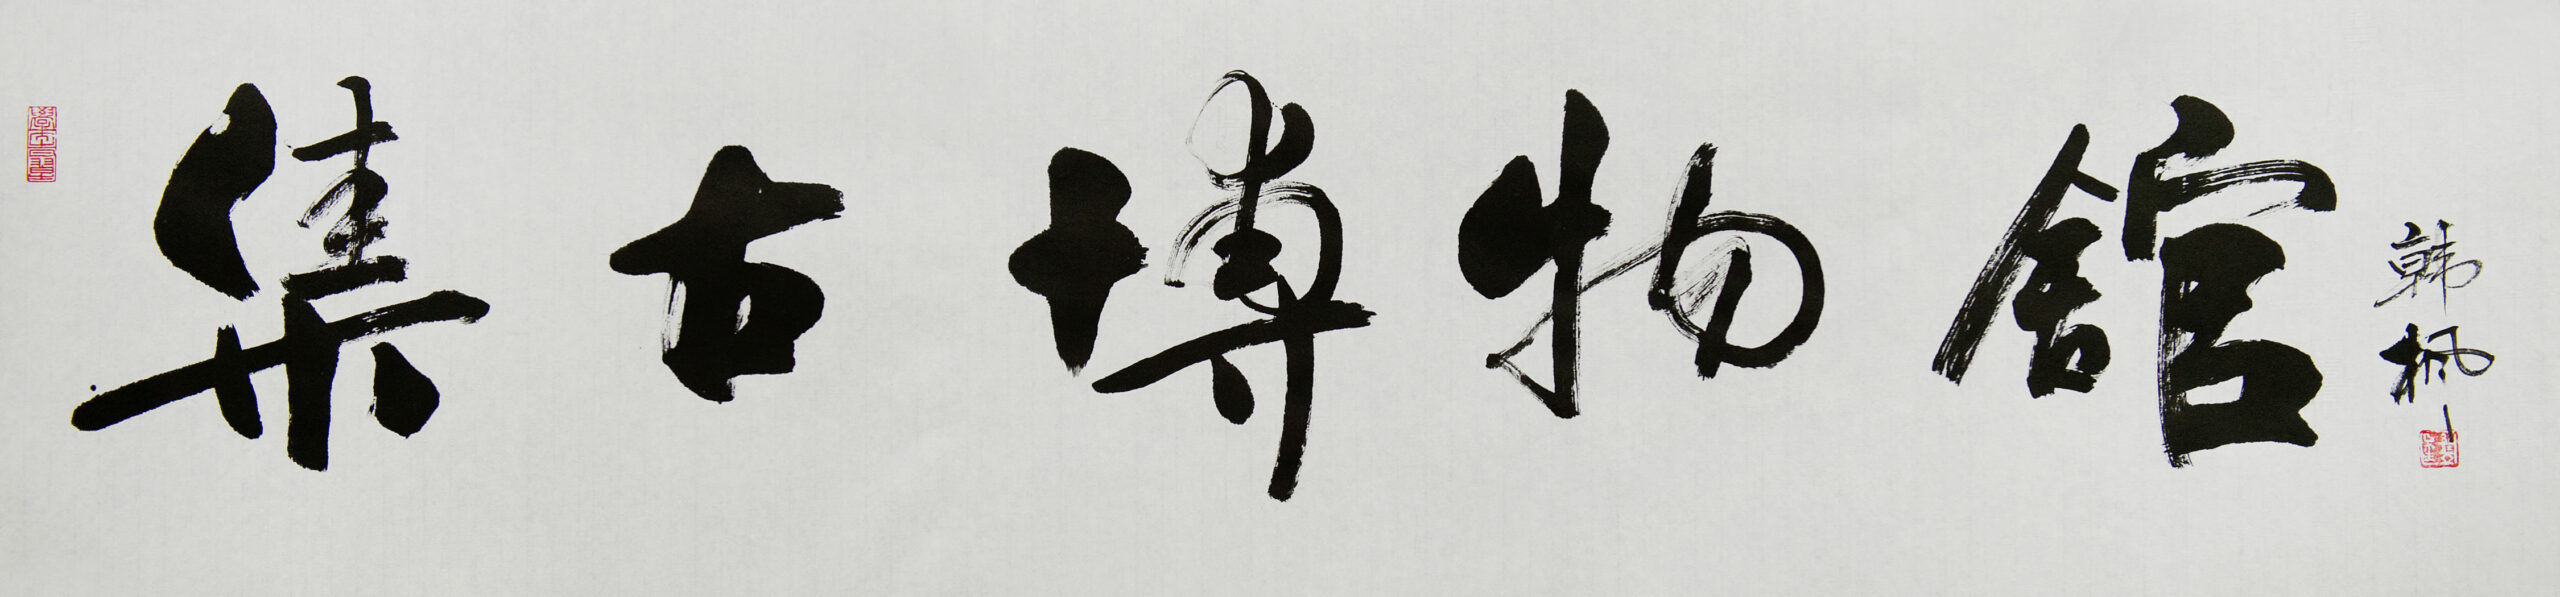 集古博物舘
韩枫